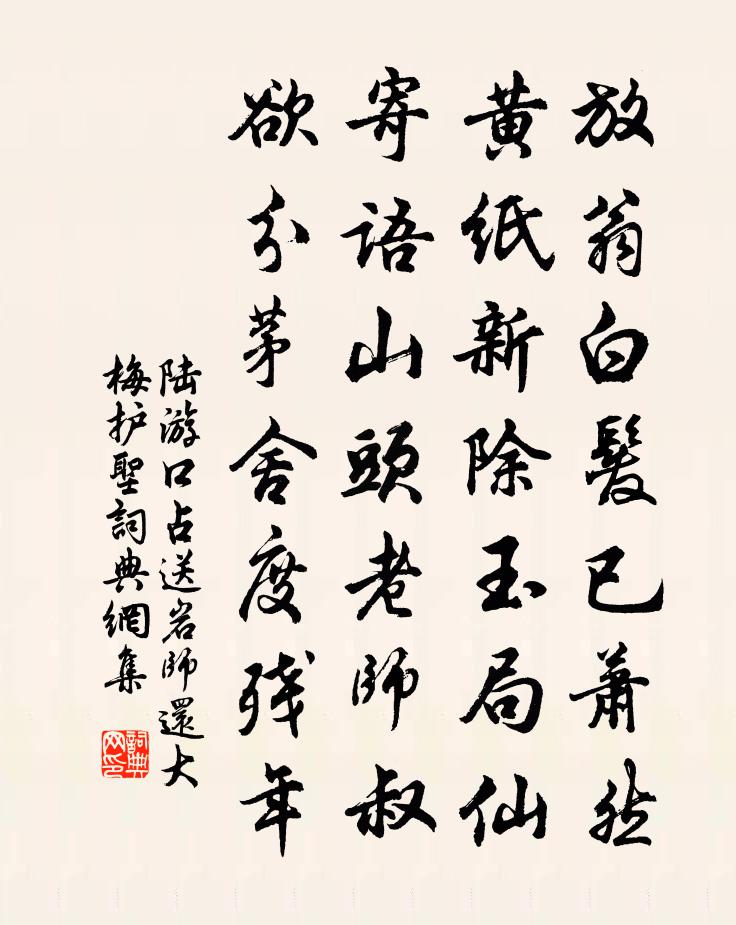 放翁白髮已蕭然
黃紙新除玉局仙
寄語山頭老師叔
欲分茅舍度残年
陆游口占送岩師還大
梅护聖詞典網集
詞典
网印